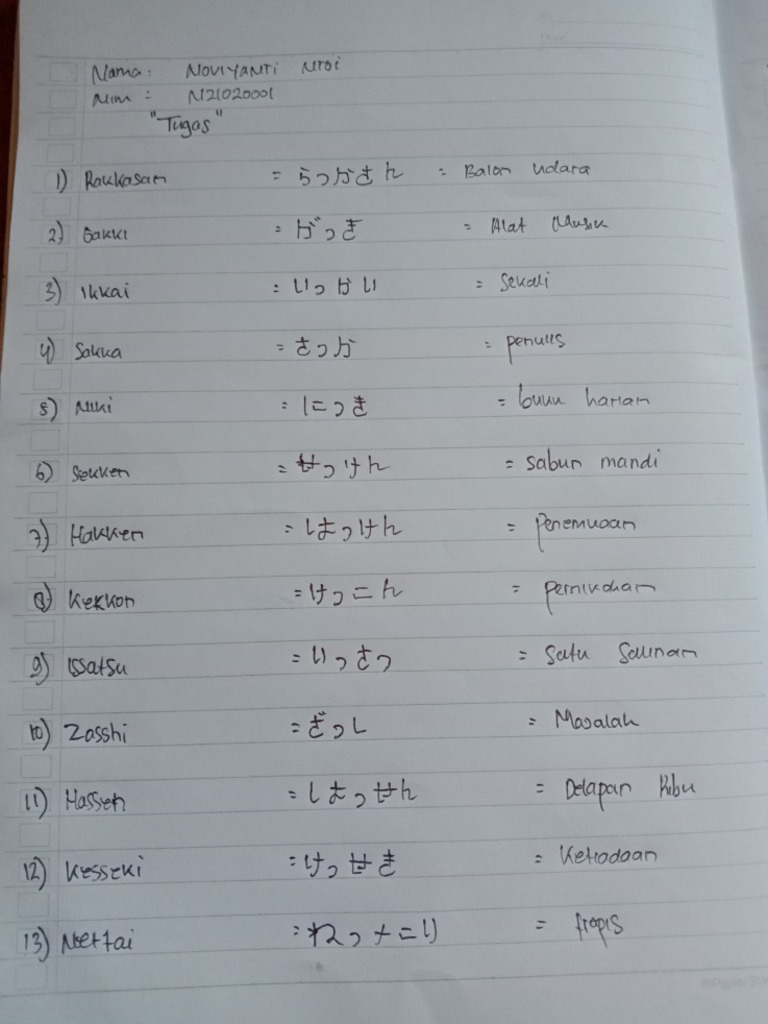 Nama : NOVIYANTI
Nim : N21020001
"Tugas"
1) Rakkasan = らっかさん = Balon udara
2) Gakki = がっき = Alat Musik
3) Ikkai = いっかい = Sekali
4) Sakka = さっか = penulis
5) Nikki = にっき = buku harian
6) Sekken = せっけん = sabun mandi
7) Hakken = はっけん = Penemuan
8) Kekkon = けっこん = pernikahan
9) Issatsu = いっさつ = Satu Salinan
10) Zasshi = ざっし = Masalah
11) Hassen = はっせん = Delapan Ribu
12) Kesseki = けっせき = Ketiadaan
13) Nettai = ねったい = tropis